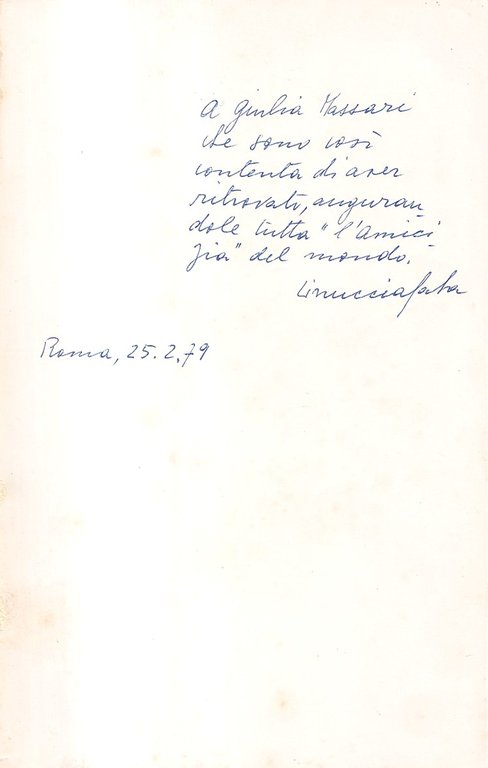 A Giulia Massari
che sono così
contenta di aver
ritrovato, auguran
dole tutta "l'amici
zia" del mondo.
Linuccia Saba
Roma, 25.2.79